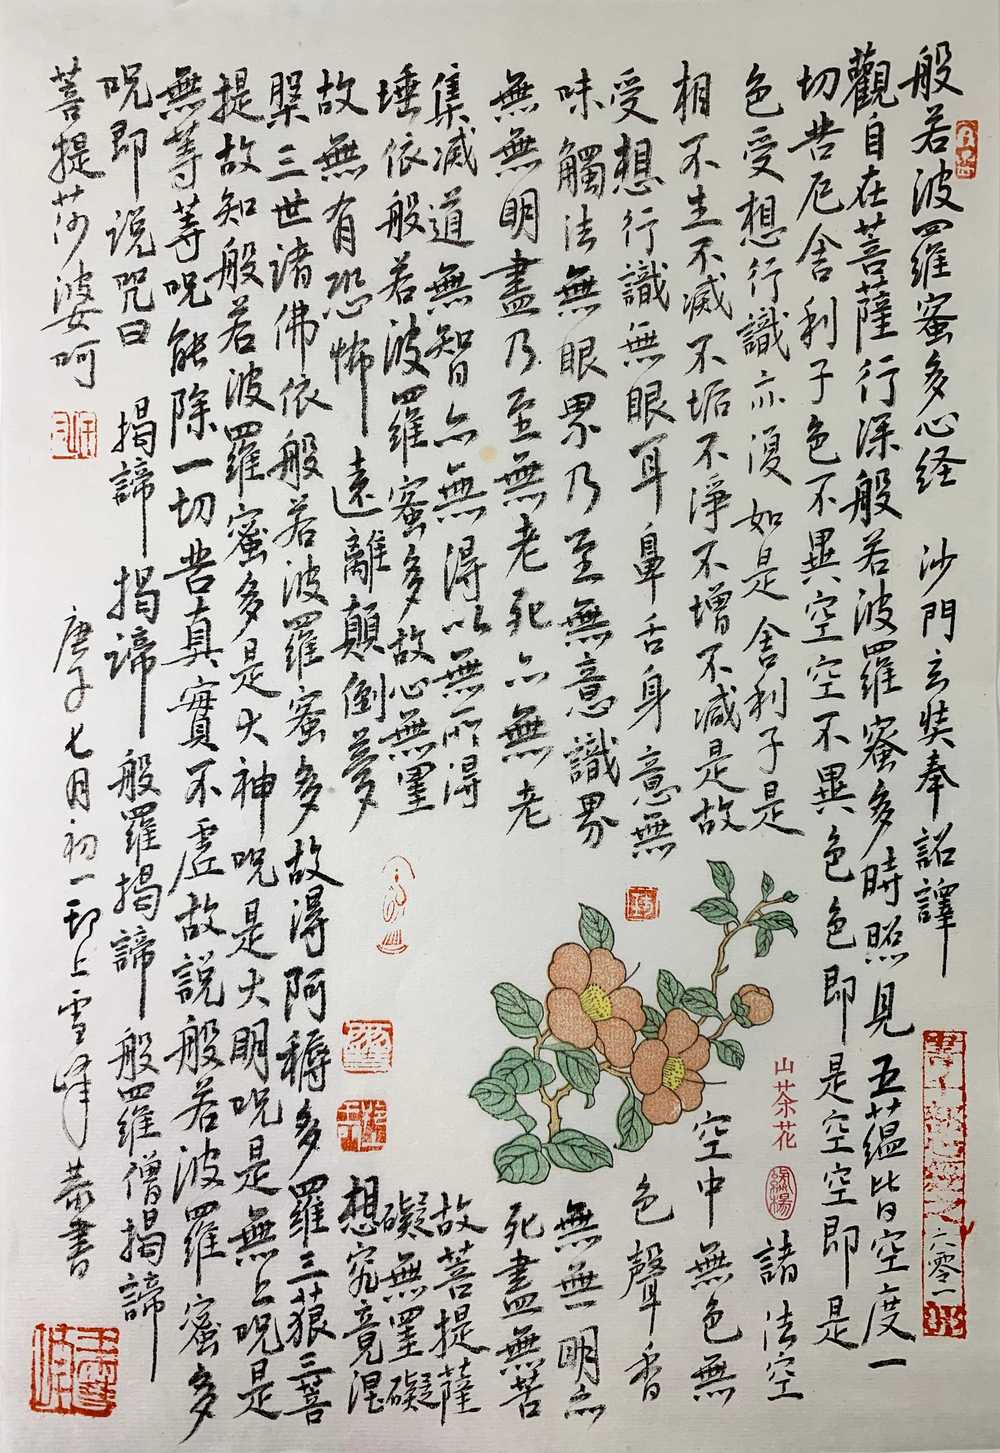 般若波羅蜜多心経 沙門玄奘奉詔譯
觀自在菩薩行深般若波羅蜜多時照見五蘊皆空度一
切苦厄舍利子色不異空空不異色色即是空空即是
色受想行識亦復如是舍利子是 諸法空
相不生不滅不垢不淨不增不減是故 空中無色無
受想行識無眼耳鼻舌身意無 色聲香
味觸法無眼界乃至無意識界 無無明亦
無無明盡乃至無老死亦無老 死盡無苦
集滅道無智亦無得以無所得 故菩提薩
埵依般若波羅蜜多故心無罣 礙無罣礙
故無有恐怖 遠離顛倒夢 想究竟涅
槃三世諸佛依般若波羅蜜多故得阿耨多羅三藐三菩
提故知般若波羅蜜多是大神呪是大明呪是無上呪是
無等等呪能除一切苦真實不虛故説般若波羅蜜多
呪即说咒曰 揭諦 揭諦 般羅揭諦 般羅僧揭諦
菩提莎婆呵
庚子七月初一邗上雪峰恭書
山茶花
綠楊